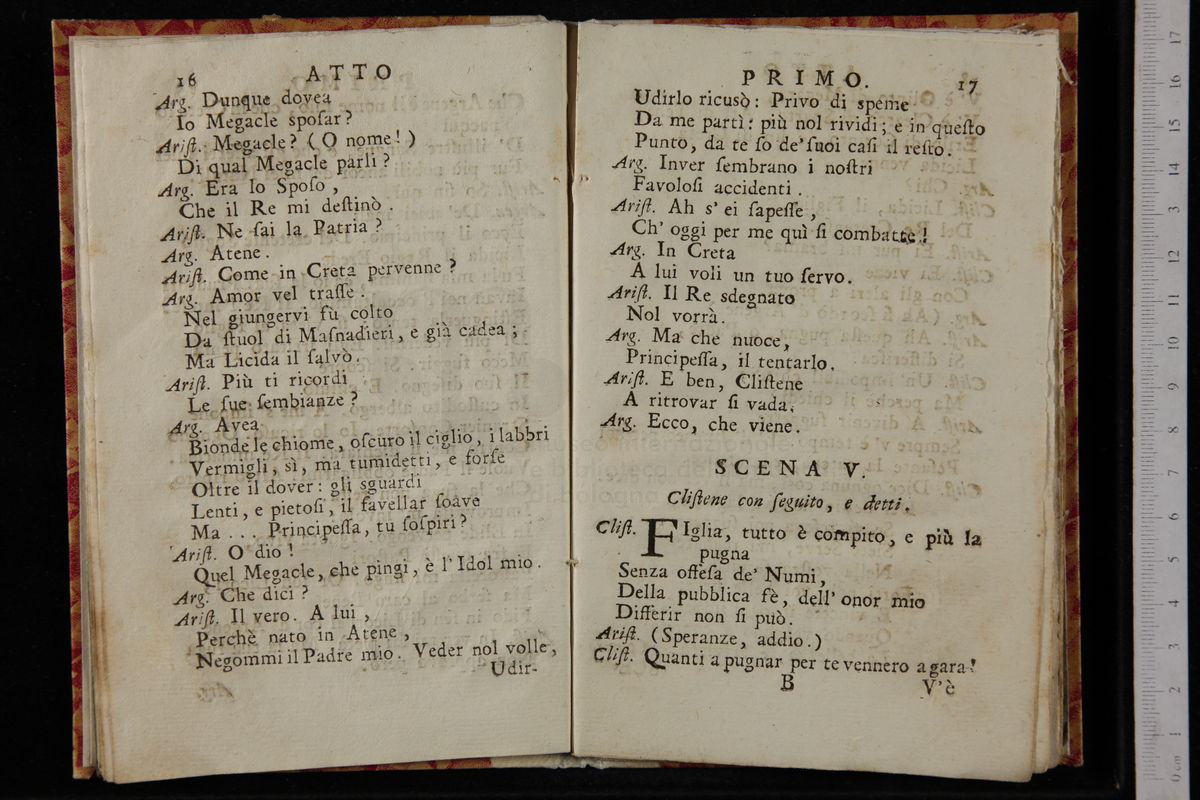 16 ATTO
Arg. Dunque dovea
Io Megacle sposar?
Arist. Megacle? (O nome!)
Di qual Megacle parli?
Arg. Era lo Sposo,
Che il Re mi destinò.
Arist. Ne sai la Patria?
Arg. Atene.
Arist. Come in Creta pervenne?
Arg. Amor vel trasse.
Nel giungervi fù colto
Da stuol di Masnadieri, e già cadea;
Ma Licida il salvò.
Arist. Più ti ricordi
Le sue sembianze?
Arg. Avea
Bionde le chiome, oscuro il ciglio, i labbri
Vermigli, sì, ma tumidetti, e forse
Oltre il dover: gli sguardi
Lenti, e pietosi, il favellar soave
Ma... Principessa, tu sospiri?
Arist. O dio!
Quel Megacle, che pingi, è l'Idol mio.
Arg. Che dici?
Arist. Il vero. A lui,
Perchè nato in Atene,
Negommi il Padre mio. Veder nol volle,
Udir-
PRIMO. 17
Udirlo ricusò: Privo di speme
Da me partì: più nol rividi; e in questo
Punto, da te so de' suoi casi il resto.
Arg. Inver sembrano i nostri
Favolosi accidenti.
Arist. Ah s' ei sapesse,
Ch' oggi per me quì si combatte!
Arg. In Creta
A lui voli un tuo servo.
Arist. Il Re sdegnato
Nol vorrà.
Arg. Ma che nuoce,
Principessa, il tentarlo.
Arist. E ben, Clistene
A ritrovar si vada.
Arg. Ecco, che viene.
SCENA V.
Clistene con seguito, e detti.
Clist. FIglia, tutto è compito, e più la
pugna
Senza offesa de' Numi,
Della pubblica fè, dell' onor mio
Differir non si può.
Arist. (Speranze, addio.)
Clist. Quanti a pugnar per te vennero a gara!
B V'è